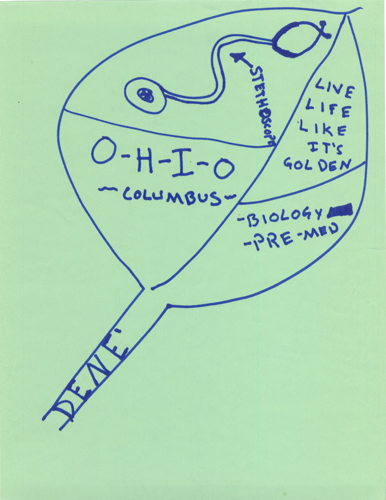 STETHOSCOPE
LIVE
LIFE
LIKE
IT'S
GOLDEN
O-H-I-O
~COLUMBUS~
-BIOLOGY
-PRE-MED
DENE'